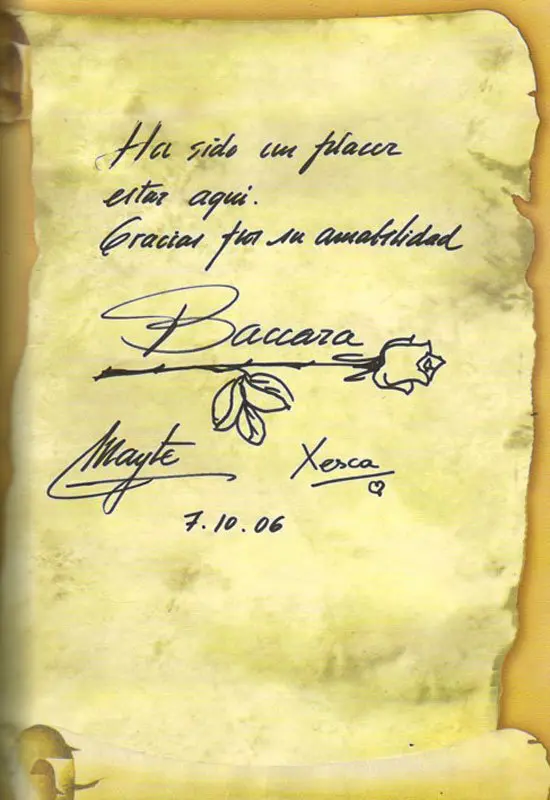 Ha sido un placer
estar aqui.
Gracias por su amabilidad
Baccara
Mayte
Xesca
7.10.06